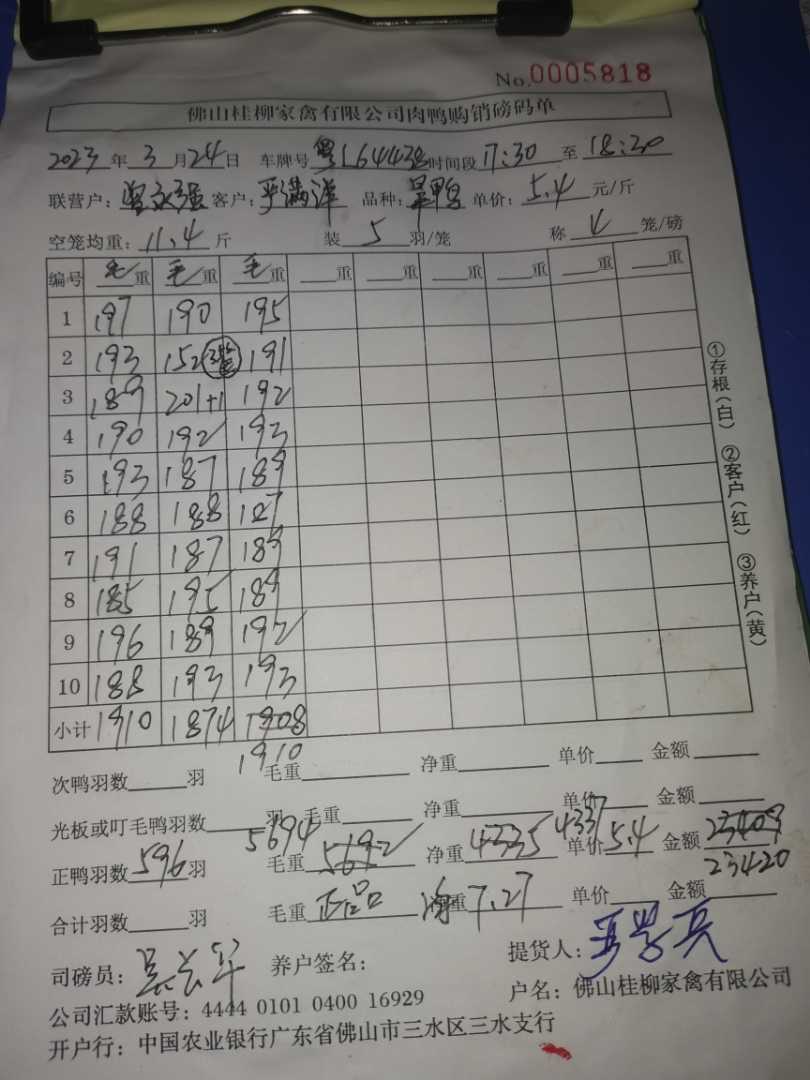 No.0005818
佛山桂柳家禽有限公司肉鸭购销磅码单
2023年3月24日 车牌号 粤L64438 时间段 17:30 至 18:30
联营户: 曾永强 客户: 严满洋 品种: 旱鸭 单价: 5.4 元/斤
空笼均重: 11.4 斤 装 5 羽/笼 称 4 笼/磅
编号 毛重 毛重 毛重 重 重 重 重 重 重
1 197 190 195
2 193 152 191
3 189 201+1 192
4 190 192 193
5 193 187 189
6 188 188 187
7 191 187 189
8 185 195 189
9 196 189 192
10 188 193 193
小计 1910 1874 1908
1910
次鸭羽数 羽 毛重 净重 单价 金额
光板或叮毛鸭羽数 羽 毛重 净重 单价 金额
5694 4337
正鸭羽数 596 羽 毛重 5692 净重 4335 单价 5.4 金额 23409
23420
合计羽数 羽 毛重 正品 净重 7.27 单价 金额
司磅员: 养户签名: 提货人:
公司汇款账号: 4444 0101 0400 16929 户名: 佛山桂柳家禽有限公司
开户行: 中国农业银行广东省佛山市三水区三水支行
①存根(白) ②客户(红) ③养户(黄)